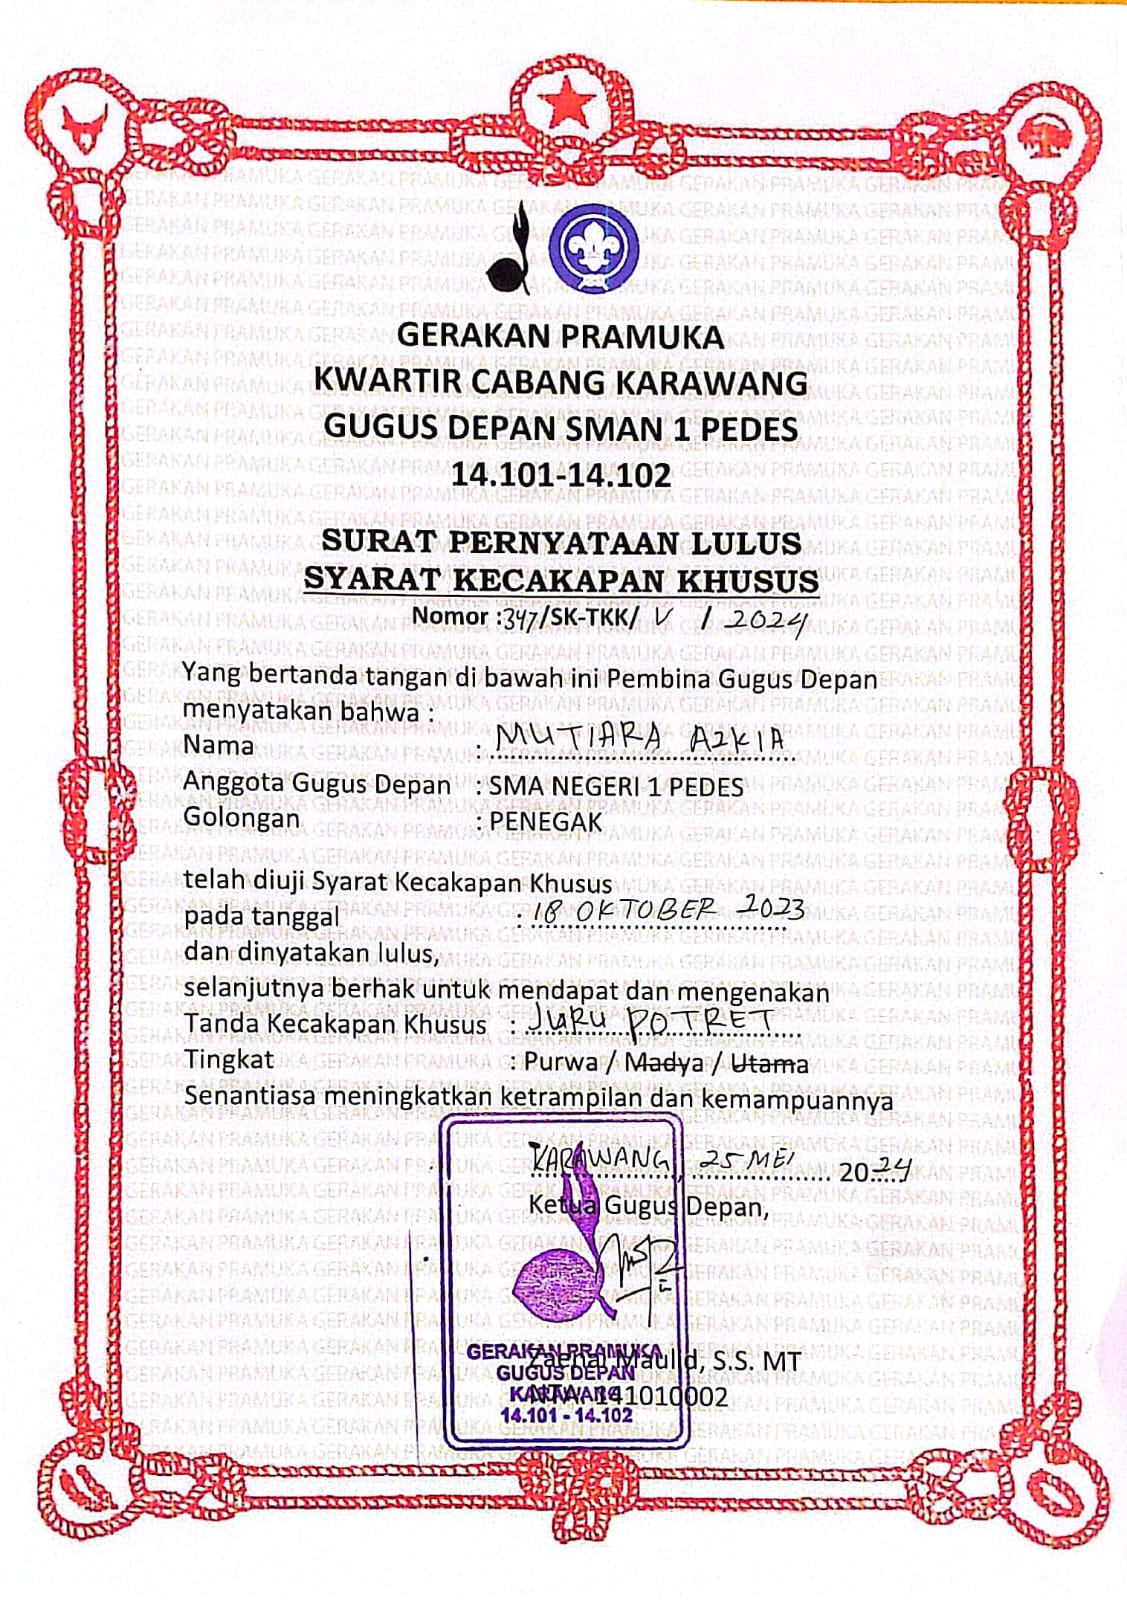 GERAKAN PRAMUKA
KWARTIR CABANG KARAWANG
GUGUS DEPAN SMAN 1 PEDES
14.101-14.102
SURAT PERNYATAAN LULUS
SYARAT KECAKAPAN KHUSUS
Nomor :347/SK-TKK/ V / 2024
Yang bertanda tangan di bawah ini Pembina Gugus Depan
menyatakan bahwa :
Nama : MUTIARA AZKIA
Anggota Gugus Depan : SMA NEGERI 1 PEDES
Golongan : PENEGAK
telah diuji Syarat Kecakapan Khusus
pada tanggal : 18 OKTOBER 2023
dan dinyatakan lulus,
selanjutnya berhak untuk mendapat dan mengenakan
Tanda Kecakapan Khusus : JURU POTRET
Tingkat : Purwa / Madya / Utama
Senantiasa meningkatkan ketrampilan dan kemampuannya
KARAWANG, 25 MEI 2024
Ketua Gugus Depan,
Zaenal Maulid, S.S. MT
NTA. 141010002
GERAKAN PRAMUKA
GUGUS DEPAN
KARAWANG
14.101 - 14.102